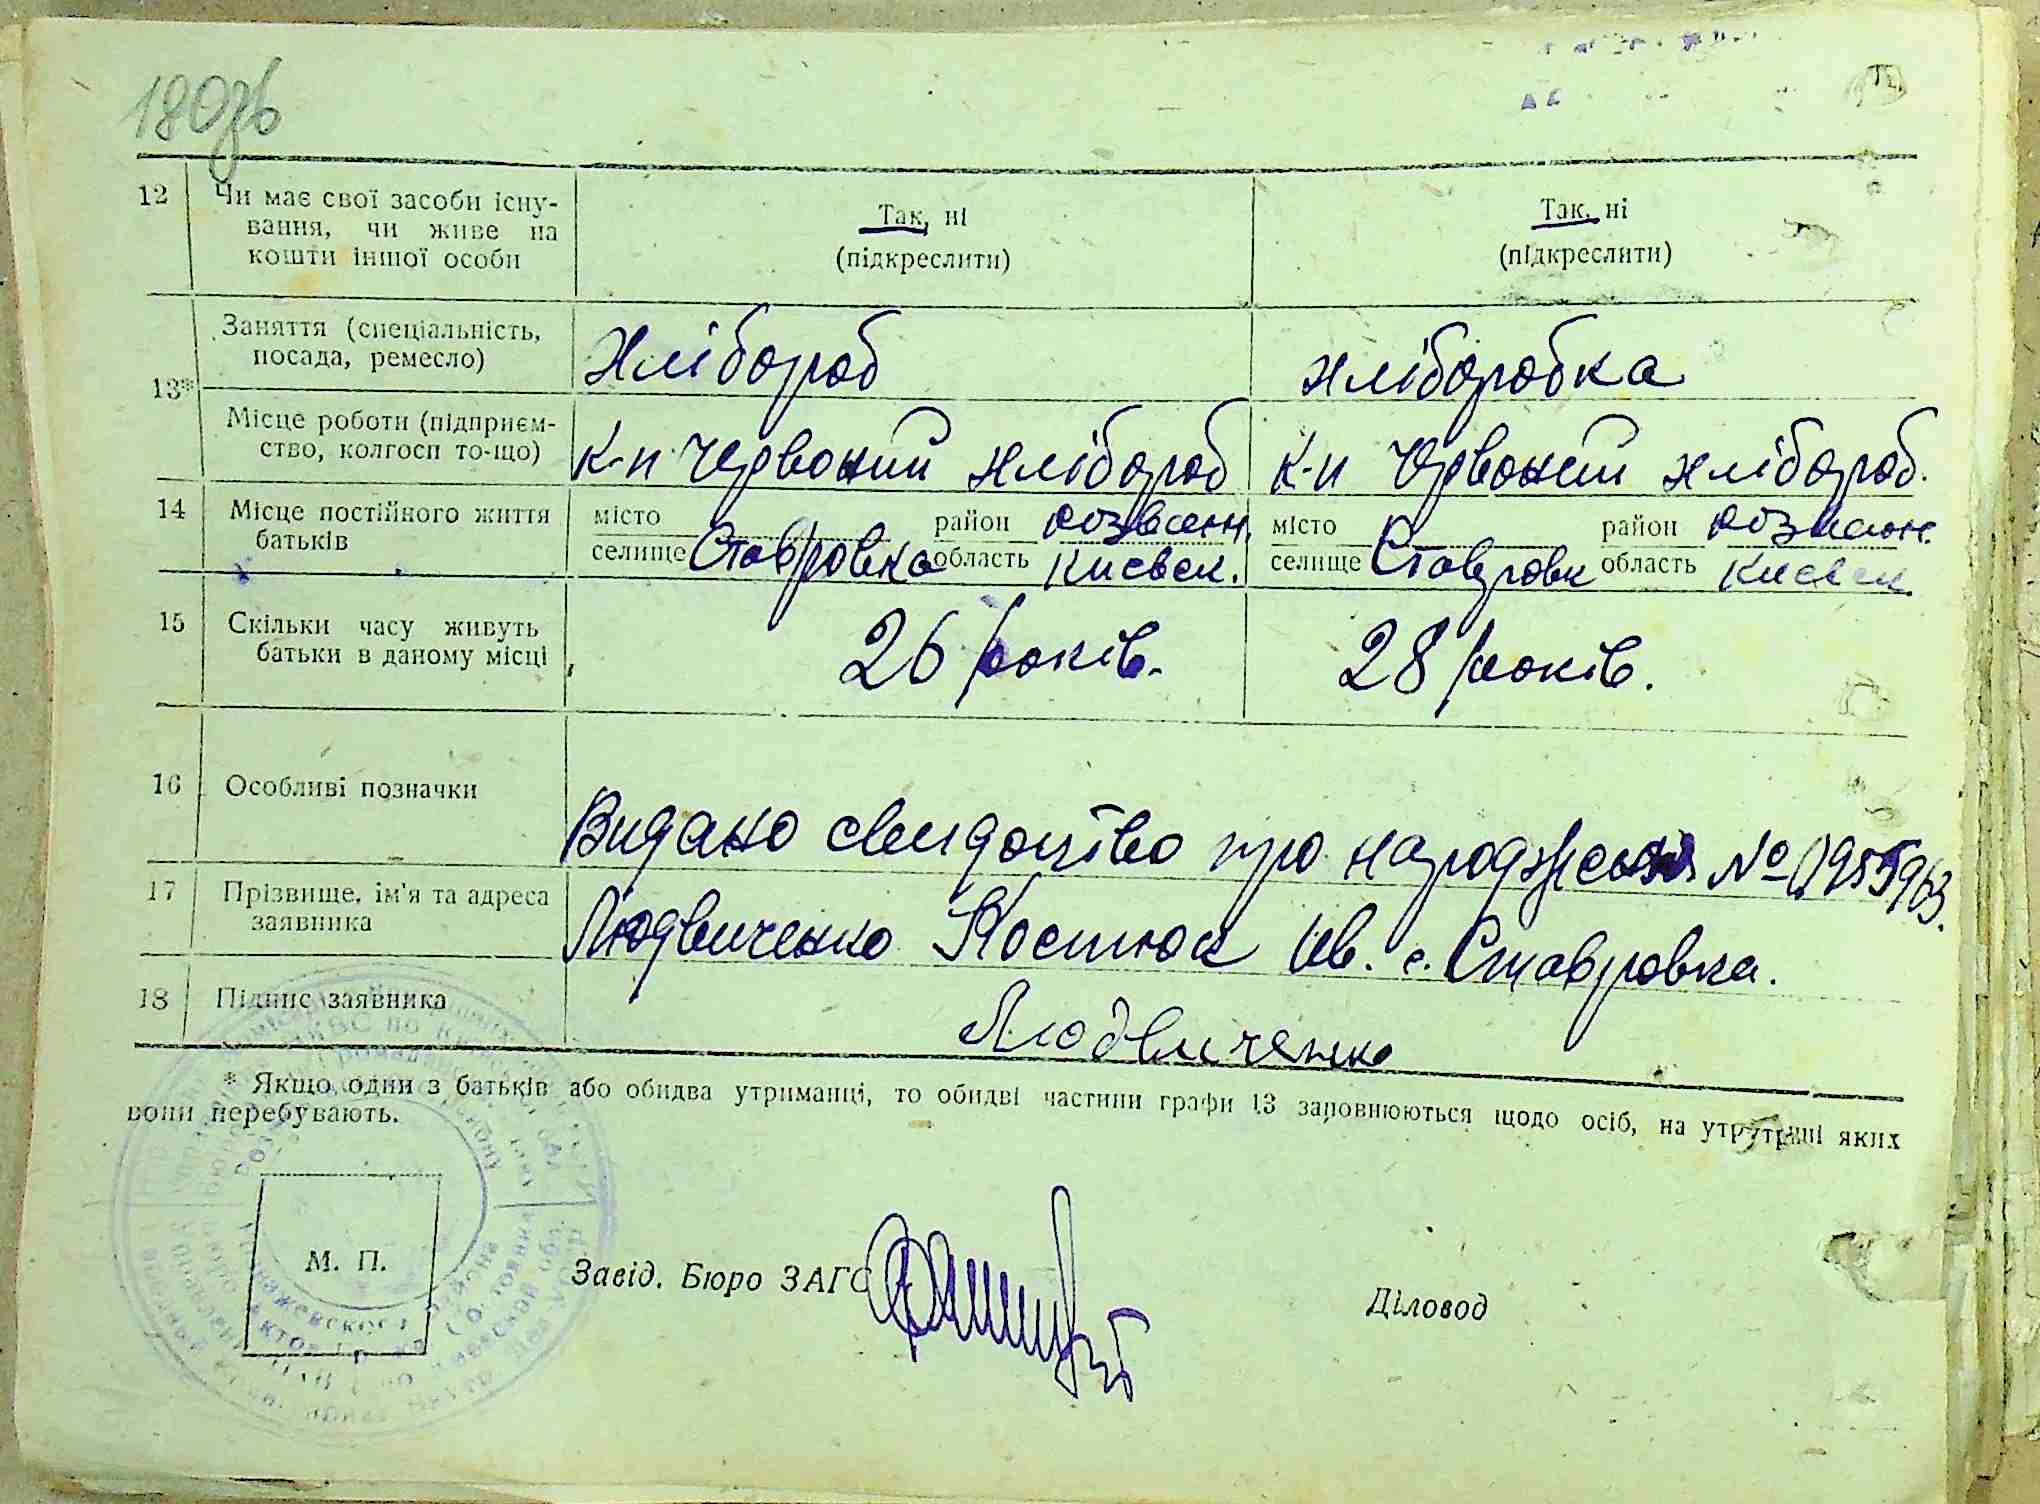 180зв
12 Чи має свої засоби існу-
вання, чи живе на
кошти іншої особи
Так, ні
(підкреслити)
Так, ні
(підкреслити)
13* Заняття (спеціальність,
посада, ремесло)
Хлібороб
хліборобка
Місце роботи (підприєм-
ство, колгосп то-що)
К-п Червоний хлібороб
К-п Червоний хлібороб.
14 Місце постійного життя
батьків
місто район Розважн.
селище Ставровка область Києвск.
місто район Розважн.
селище Ставровк область Києвск.
15 Скільки часу живуть
батьки в даному місці
26 років.
28 років.
16 Особливі позначки
Видано свидоцтво про народження №
17 Прізвище, ім'я та адреса
заявника
Людвиченко Костюк Ив. с. Ставровка.
18 Підпис заявника
Людвиченко
* Якщо одни з батьків або обидва утриманці, то обидві частини графи 13 заповнюються щодо осіб, на утрутрині яких
вони перебувають.
М. П.
Завід. Бюро ЗАГС
Діловод